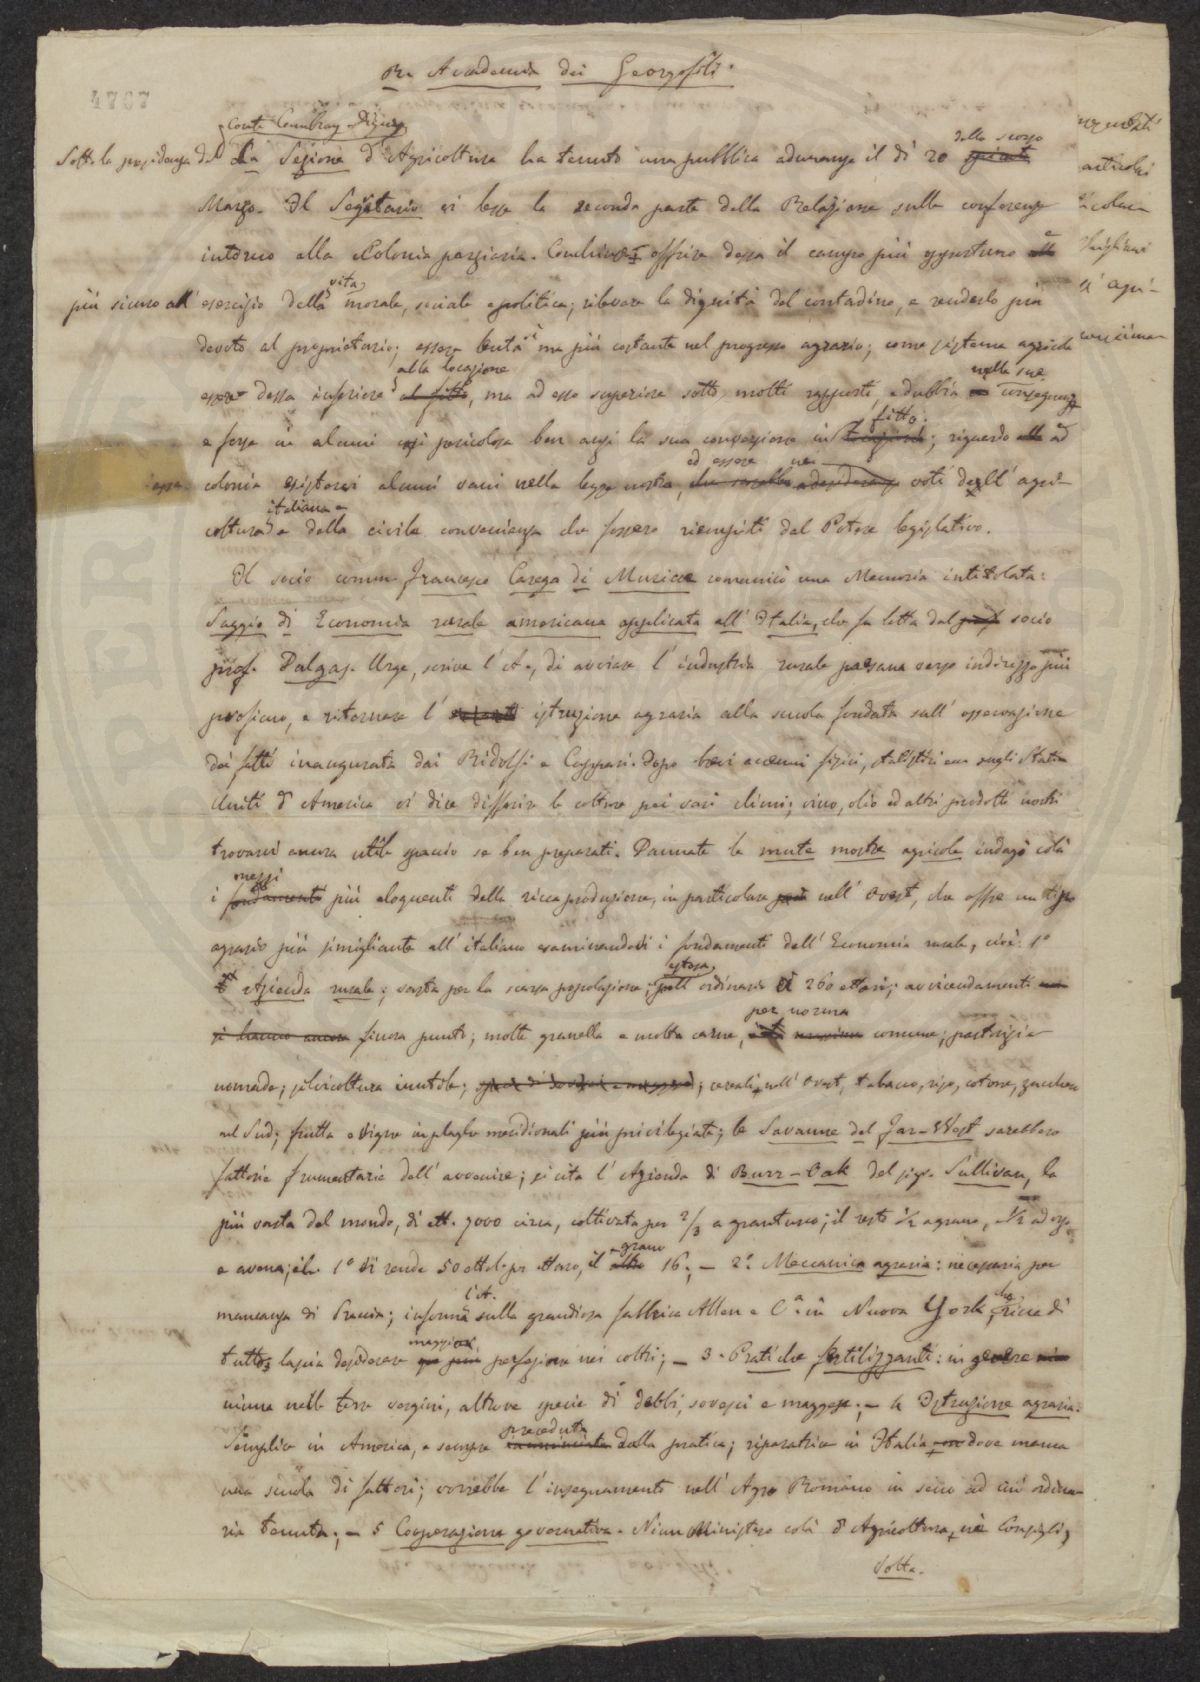 R. Accademia dei Georgofili.
4767
Conte Cambray-Digny
Sotto la presidenza del La Sezione d'Agricoltura ha tenuto una pubblica adunanza il dì 20 dello scorso
Marzo. Il Segretario vi lesse la seconda parte della Relazione sulle conferenze
intorno alla Colonia parziaria. Conchiuse offrire dessa il campo più opportuno e
più sicuro all'esercizio della vita morale, sociale e politica; rilevare la dignità del contadino, e renderlo più
devoto al proprietario; essere lenta sì ma più costante nel progresso agrario; come sistema agricolo
essere dessa inferiore alla locazione al fitto, ma ad esso superiore sotto molti rapporti, e dubbia nelle sue conseguenze
e forse in alcuni casi pericolosa ben anzi la sua conversione in fitto; riguardo alla ad
essa colonia esistervi alcuni vani nella legge nostra, ed essere nei voti dell'agri-
coltura italiana e della civile convenienza che fossero riempiti dal Potere legislativo.
Il socio comm. Francesco Carega di Muricce comunicò una Memoria intitolata:
Saggio di Economia rurale americana applicata all'Italia, che fu letta dal socio
prof. Dalgas. Urge, scrive l'A., di avviare l'industria rurale paesana verso indirizzo più
proficuo, e ritornare l' istruzione agraria alla scuola fondata sull'osservazione
dei fatti inaugurata dai Ridolfi e Cuppari. Dopo brevi accenni fisici, statistici ecc. sugli Stati
Uniti d'America vi dice differire le colture pei vari climi; vino, olio ed altri prodotti nostri
trovarvi ancora utile spaccio se ben preparati. Dannate le mute mostre agricole indagò colà
i messi fondamenti più eloquenti della ricca produzione, in particolare nell'Ovest, che offre un tipo
agrario più simigliante all'italiano esaminandovi i fondamenti dell'Economia rurale, cioè: 1°
Azienda rurale; vasta per la scarsa popolazione; estesa nell'ordinario a 260 ettari; avvicendamenti
si hanno ancora finora punto; molte granella e molta carne, per norma comune; pastorizia
nomade; silvicoltura inutile; cereali nell'Ovest, tabacco, riso, cotone, zucchero
nel Sud; frutta e vigne in plaghe meridionali più privilegiate; le Savanne del Far-West sarebbero
fattorie frumentarie dell'avvenire; si cita l'Azienda di Burr-Oak del sig. Sullivan, la
più vasta del mondo, di ett. 7000 circa, coltivata per 2/3 a granturco; il resto 1/2 a grano, 1/2 ad orzo
e avena; il 1° vi rende 50 ettol. per ettaro, il grano altro 16; — 2° Meccanica agraria: necessaria per
mancanza di braccia; informa l'A. sulla grandiosa fabbrica Allen e C.a in Nuova York, che ricca di
tutto, lascia desiderare maggior perfezione nei coltri; — 3. Pratiche fertilizzanti: in genere
niuna nelle terre vergini, altrove specie di debbi, sovesci e maggese; — 4 Istruzione agraria:
Semplice in America, e sempre preceduta dalla pratica; riparatrice in Italia ove manca
una scuola di fattori; vorrebbe l'insegnamento nell'Agro Romano in seno ad un'ordina-
ria tenuta; — 5 Cooperazione governativa. Niun Ministero colà d'Agricoltura, nè Consigli,
Volta.
articolai